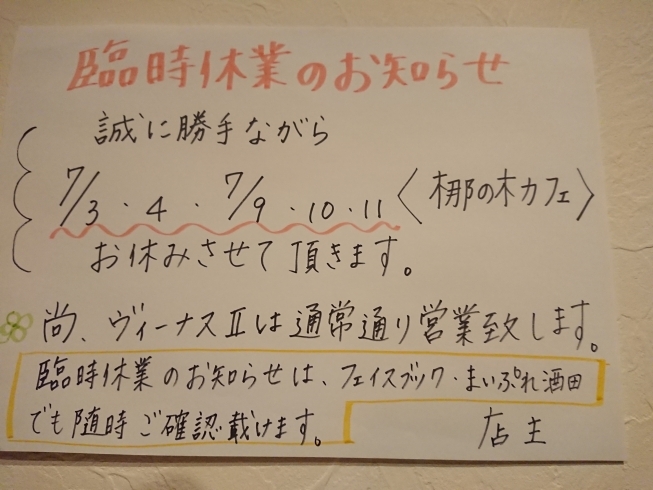 臨時休業のお知らせ
誠に勝手ながら
7/3・4・7/9・10・11〈梛の木カフェ〉
お休みさせて頂きます。
尚、ヴィーナスⅡは通常通り営業致します。
臨時休業のお知らせは、フェイスブック・まいぷれ酒田
でも随時ご確認載けます。
店主